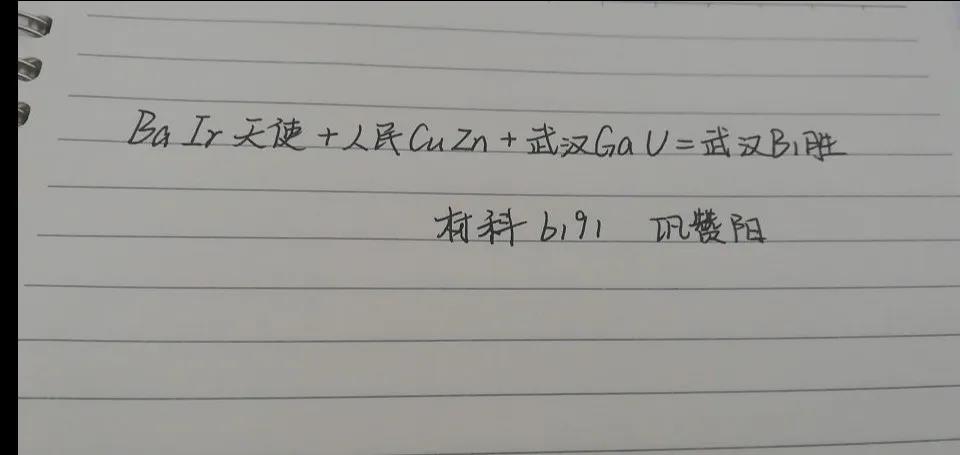 Ba Ir 天使+人民CuZn+武汉Ga U=武汉Bi胜
材科b191 巩赞阳